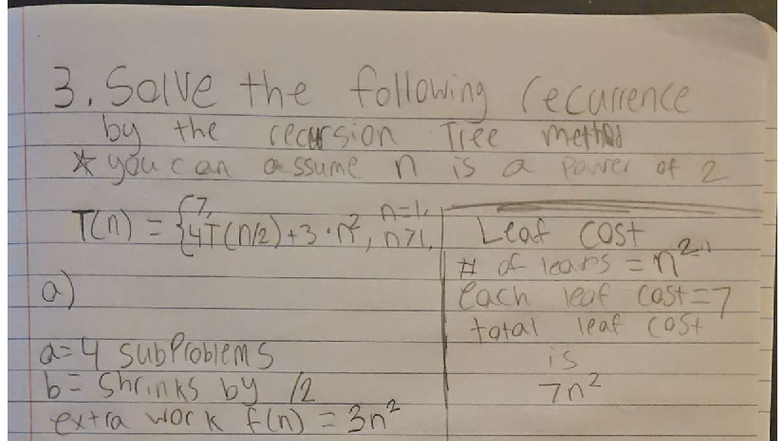 3. Solve the following recurrence
by the recursion Tree method
* you can assume n is a power of 2
T(n) = { 7, n=1,
4T(n/2)+3·n², n>1,
a)
a=4 subproblems
b= shrinks by /2
extra work f(n) = 3n²
Leaf cost
# of leavs = n²
each leaf cost=7
total leaf cost
is
7n²